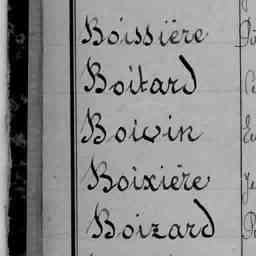 Boissière
Boitard
Boivin
Boixière
Boizard